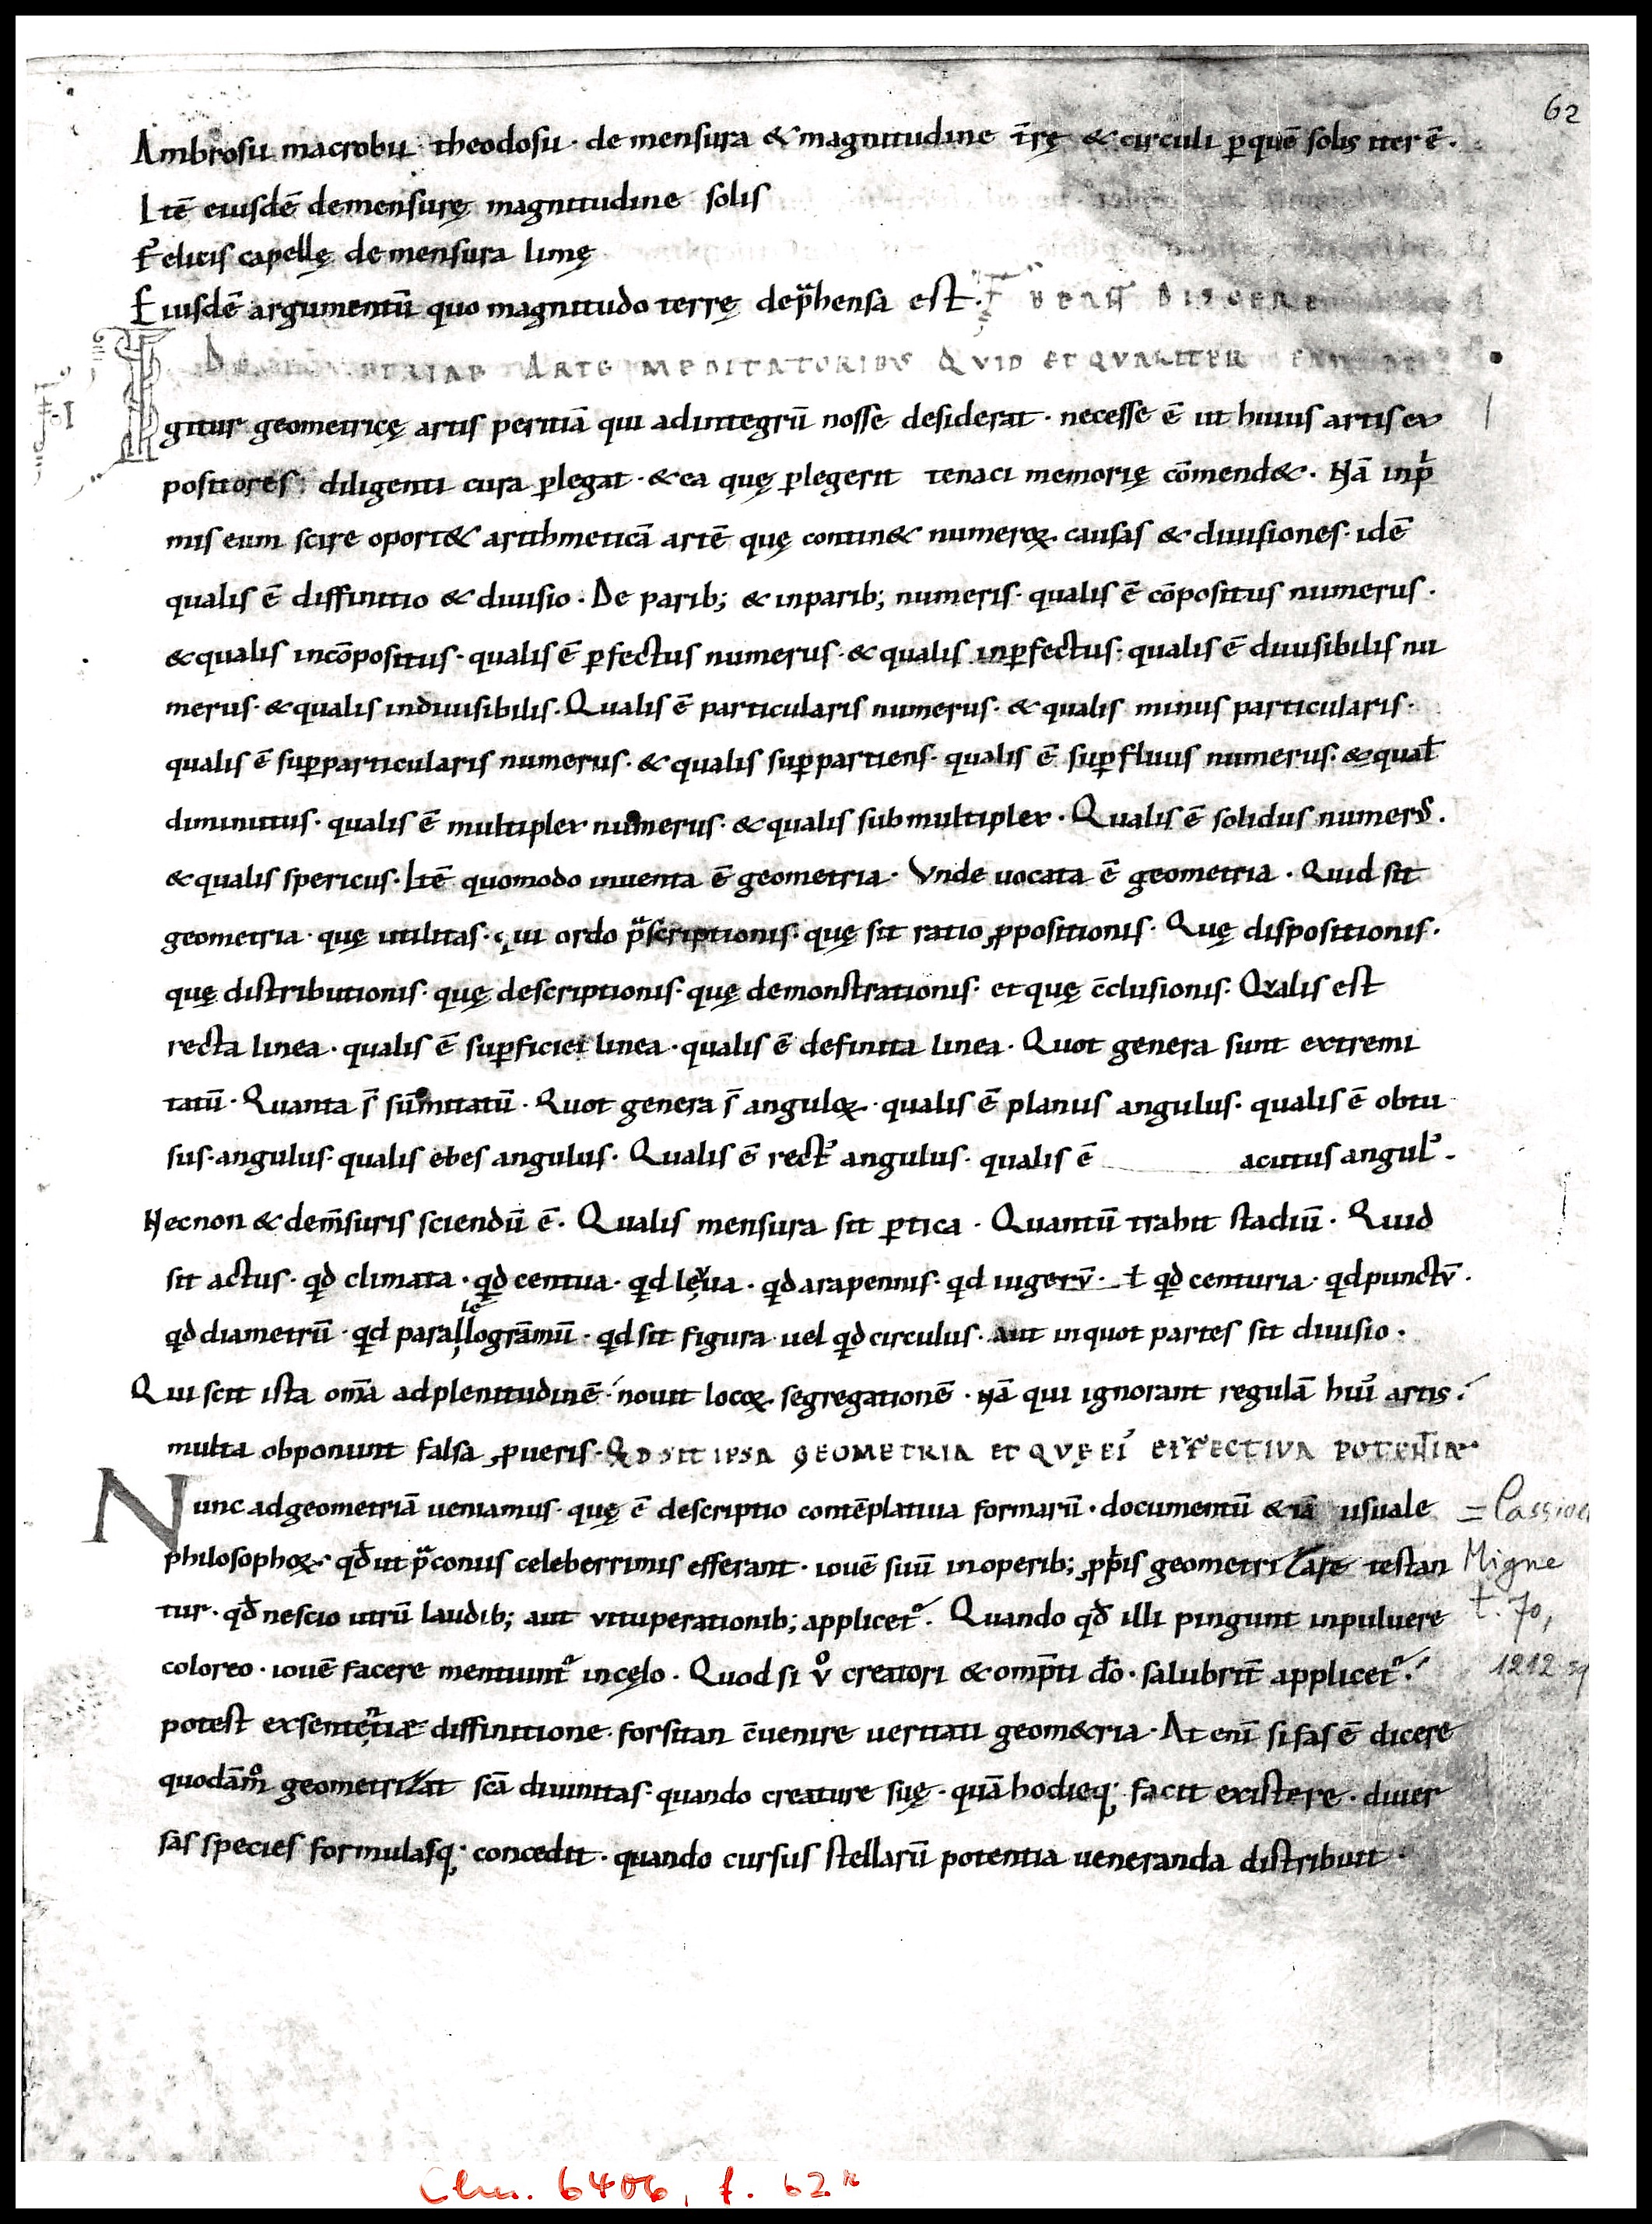 62
Ambrosii macrobii theodosii · de mensura & magnitudine t̄rę & circuli ꝑ quē solis iter ē ·
Itē eiusdē de mensurę magnitudine solis
Felicis capellę de mensura lunę
Eiusdē argumentū quo magnitudo terrę dep̄hensa est ·
ARTE MEDITATORIBUS QVID ET QVALITER
Igitur geometricę artis peritiā qui ad integrū nosse desiderat · necesse ē ut huius artis ex
positores diligenti cura ꝑlegat · & ea quę ꝑlegerit tenaci memorię cōmend& · Nā inp̄
mis eum scire oport& arithmeticā artē quę contin& numeroꝝ causas & diuisiones · idē
qualis ē diffinitio & diuisio · De parib; & inparib; numeris · qualis ē cōpositus numerus ·
& qualis incōpositus · qualis ē ꝑfectus numerus · & qualis inꝑfectus · qualis ē diuisibilis nu
merus · & qualis indiuisibilis · Qualis ē particularis numerus · & qualis minus particularis ·
qualis ē suꝑparticularis numerus · & qualis suꝑpartiens · qualis ē suꝑfluus numerus · & qual̄
diminutus · qualis ē multiplex numerus · & qualis submultiplex · Qualis ē solidus numerꝰ ·
& qualis spericus · Itē quomodo inuenta ē geometria · Vnde uocata ē geometria · Quid sit
geometria · quę utilitas · qui ordo p̄scriptionis · quę sit ratio ꝓpositionis · Quę dispositionis ·
quę distributionis · quę descriptionis · quę demonstrationis · et quę c̄clusionis · Qvalis est
recta linea · qualis ē suꝑficiei linea · qualis ē definita linea · Quot genera sunt extremi
tatū · Quanta s̄ sūmitatū · Quot genera s̄ anguloꝝ · qualis ē planus angulus · qualis ē obtu
sus · angulus · qualis ebes angulus · Qualis ē rectꝰ angulus · qualis ē acutus angulꝰ ·
Necnon & dem̄suris sciendū ē · Qualis mensura sit ꝑtica · Quantū trahit stadiū · Quid
sit actus · qd̄ climata · qd̄ centua · qd̄ leuua · qd̄ arapennis · qd̄ iugerv̄ · ł qd̄ centuria · qd̄ punctv̄ ·
qd̄ diametrū · qd̄ parallelogrāmū · qd̄ sit figura uel qd̄ circulus · aut in quot partes sit diuisio ·
Qui scit ista om̄a ad plenitudinē · nouit locoꝝ segregationē · Nā qui ignorant regulā huiꝰ artis ·
multa obponunt falsa ꝓ ueris · QD SIT IPSA GEOMETRIA ET QVĘ EIꝰ EFFECTIVA POTENTIA
Nunc ad geometriā ueniamus · quę ē descriptio contēplatiua formarū · documentū & iā usuale
philosophoꝝ · qd̄ ut p̄coniis celeberrimis efferant · iouē suū in operib; ꝓp̄is geometrizare testan
tur · qd̄ nescio utrū laudib; aut vituperationib; applicet᷑ · Quando qd̄ illi pingunt in puluere
coloreo · iouē facere mentiunt᷑ in cęlo · Quod si v̊ creatori & omp̄ti dō · salubrit̄ applicet᷑ ·
potest ex sententiæ diffinitione · forsitan c̄uenire ueritati geom&ria · At enī si fas ē dicere
quodām̊ geometrizat scā diuinitas · quando creature suę · quā hodieq; facit existere · diuer
sas species formulasq; concedit · quando cursus stellarū potentia ueneranda distribuit ·
Migne
t. 70,
1212 sq
Clm. 6406, f. 62ʳ